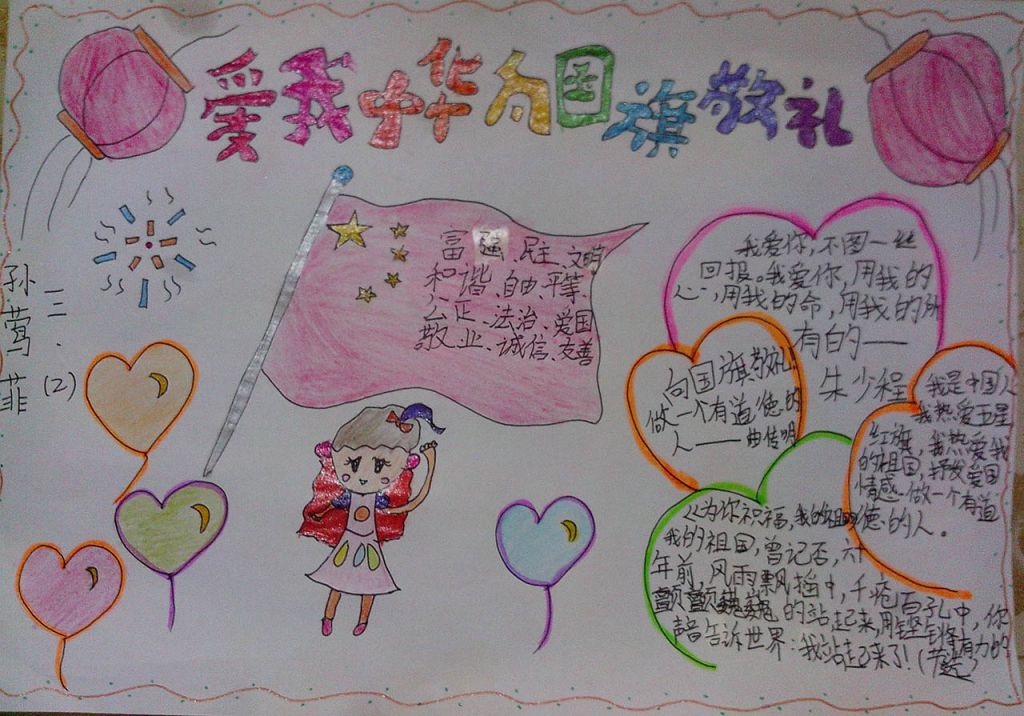 爱我中华 向国旗敬礼
富强、民主、文明
和谐、自由、平等、
公正、法治、爱国
敬业、诚信、友善
孙莺菲
三·(2)
我爱你,不图一丝
回报。我爱你,用我的
心,用我的命,用我的所
有的——
朱少程
向国旗敬礼
做一个有道德的
人——曲传明
我是中国人
我热爱五星
红旗,我热爱我
的祖国,抒发爱国
情感、做一个有道
德的人。
《为你祝福,我的祖国》
我的祖国,曾记否,六十
年前,风雨飘摇中,千疮百孔中,你
颤颤巍巍的站起来,用铿锵有力的
声音告诉世界:我站起来了!(节选)